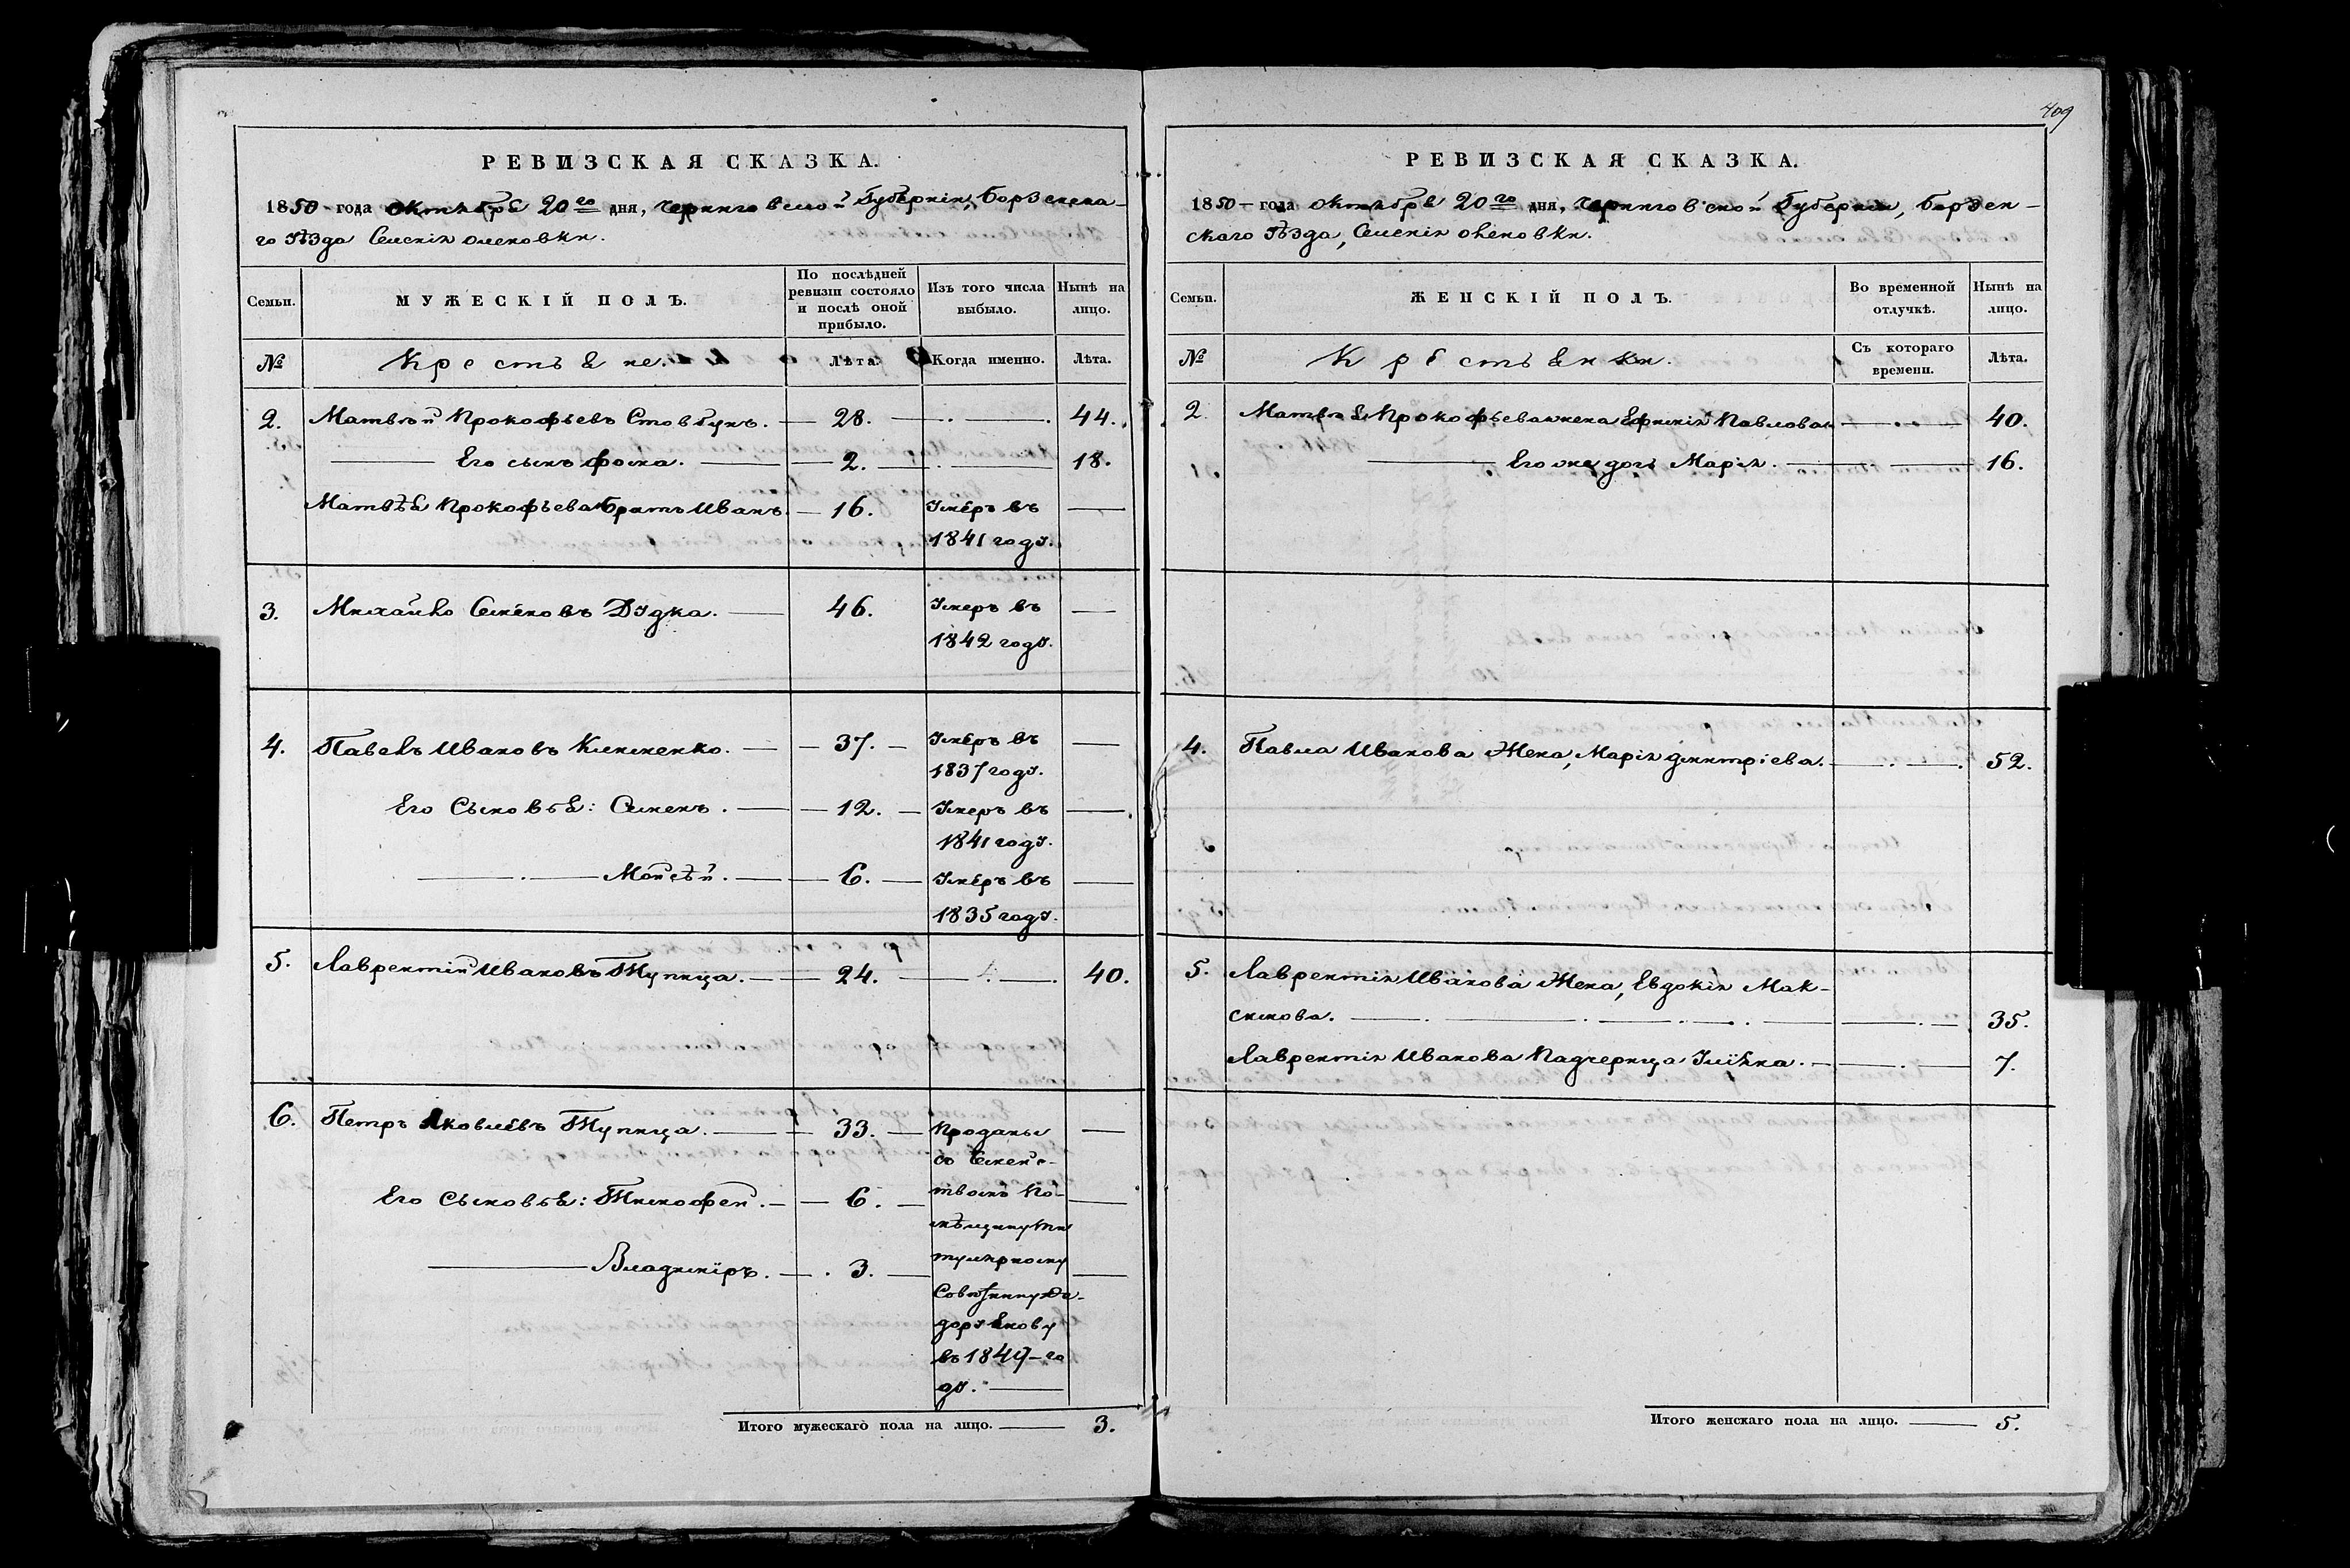 РЕВИЗСКАЯ СКАЗКА.
1850 года октября 20го дня, Черниговской Губерніи, Борзенска-
го уѣзда
Семьи.
МУЖЕСКІЙ ПОЛЪ.
По послѣдней ревизіи состояло и послѣ оной прибыло.
Изъ того числа выбыло.
Нынѣ на лицо.
№ Крестьяне. Лѣта. Когда именно. Лѣта.
2. Матвѣй Прокофьевъ Стовбунъ. — 28. — 44.
Его сынъ Фома. — 2. — 18.
Матвѣя Прокофьева братъ Иванъ — 16. Умеръ въ —
1841 году.
3. Михайло Семеновъ Дудка. — 46. Умеръ въ —
1842 году.
4. Павелъ Ивановъ Клименко. — 37. — Умеръ въ —
1837 году.
Его сыновья: Семенъ. — 12. — Умеръ въ —
1841 году.
— Мойсѣй. — 6. — Умеръ въ —
1835 году.
5. Лаврентій Ивановъ Тупица. — 24. — 40.
6. Петръ Яковлевъ Тупица. — 33. — Проданы —
со Семейс-
Его сыновья: Тимофей. — 6. — твомъ По- —
мѣщику Ти
тулярному
— Владиміръ. — 3. — —
Совѣтнику Фе-
дору
въ 1849-го
ду. —
Итого мужескаго пола на лицо. — 3.
409
РЕВИЗСКАЯ СКАЗКА.
1850 — года октября 20го дня, Черниговской Губерніи, Борзен-
скаго уѣзда,
Семьи.
ЖЕНСКІЙ ПОЛЪ.
Во временной отлучкѣ.
Нынѣ на лицо.
№ Крестьянки. Съ котораго времени. Лѣта.
2. Матвѣя Прокофьева жена Ефимія Павлова — 40.
— Его же дочь Марія. — 16.
4. Павла Иванова Жена, Марія Дмитріева. — 52.
5. Лаврентія Иванова Жена, Евдокія Мак-
симова. — 35.
Лаврентія Иванова Падчерица Уліяна. — 7.
Итого женскаго пола на лицо. — 5.